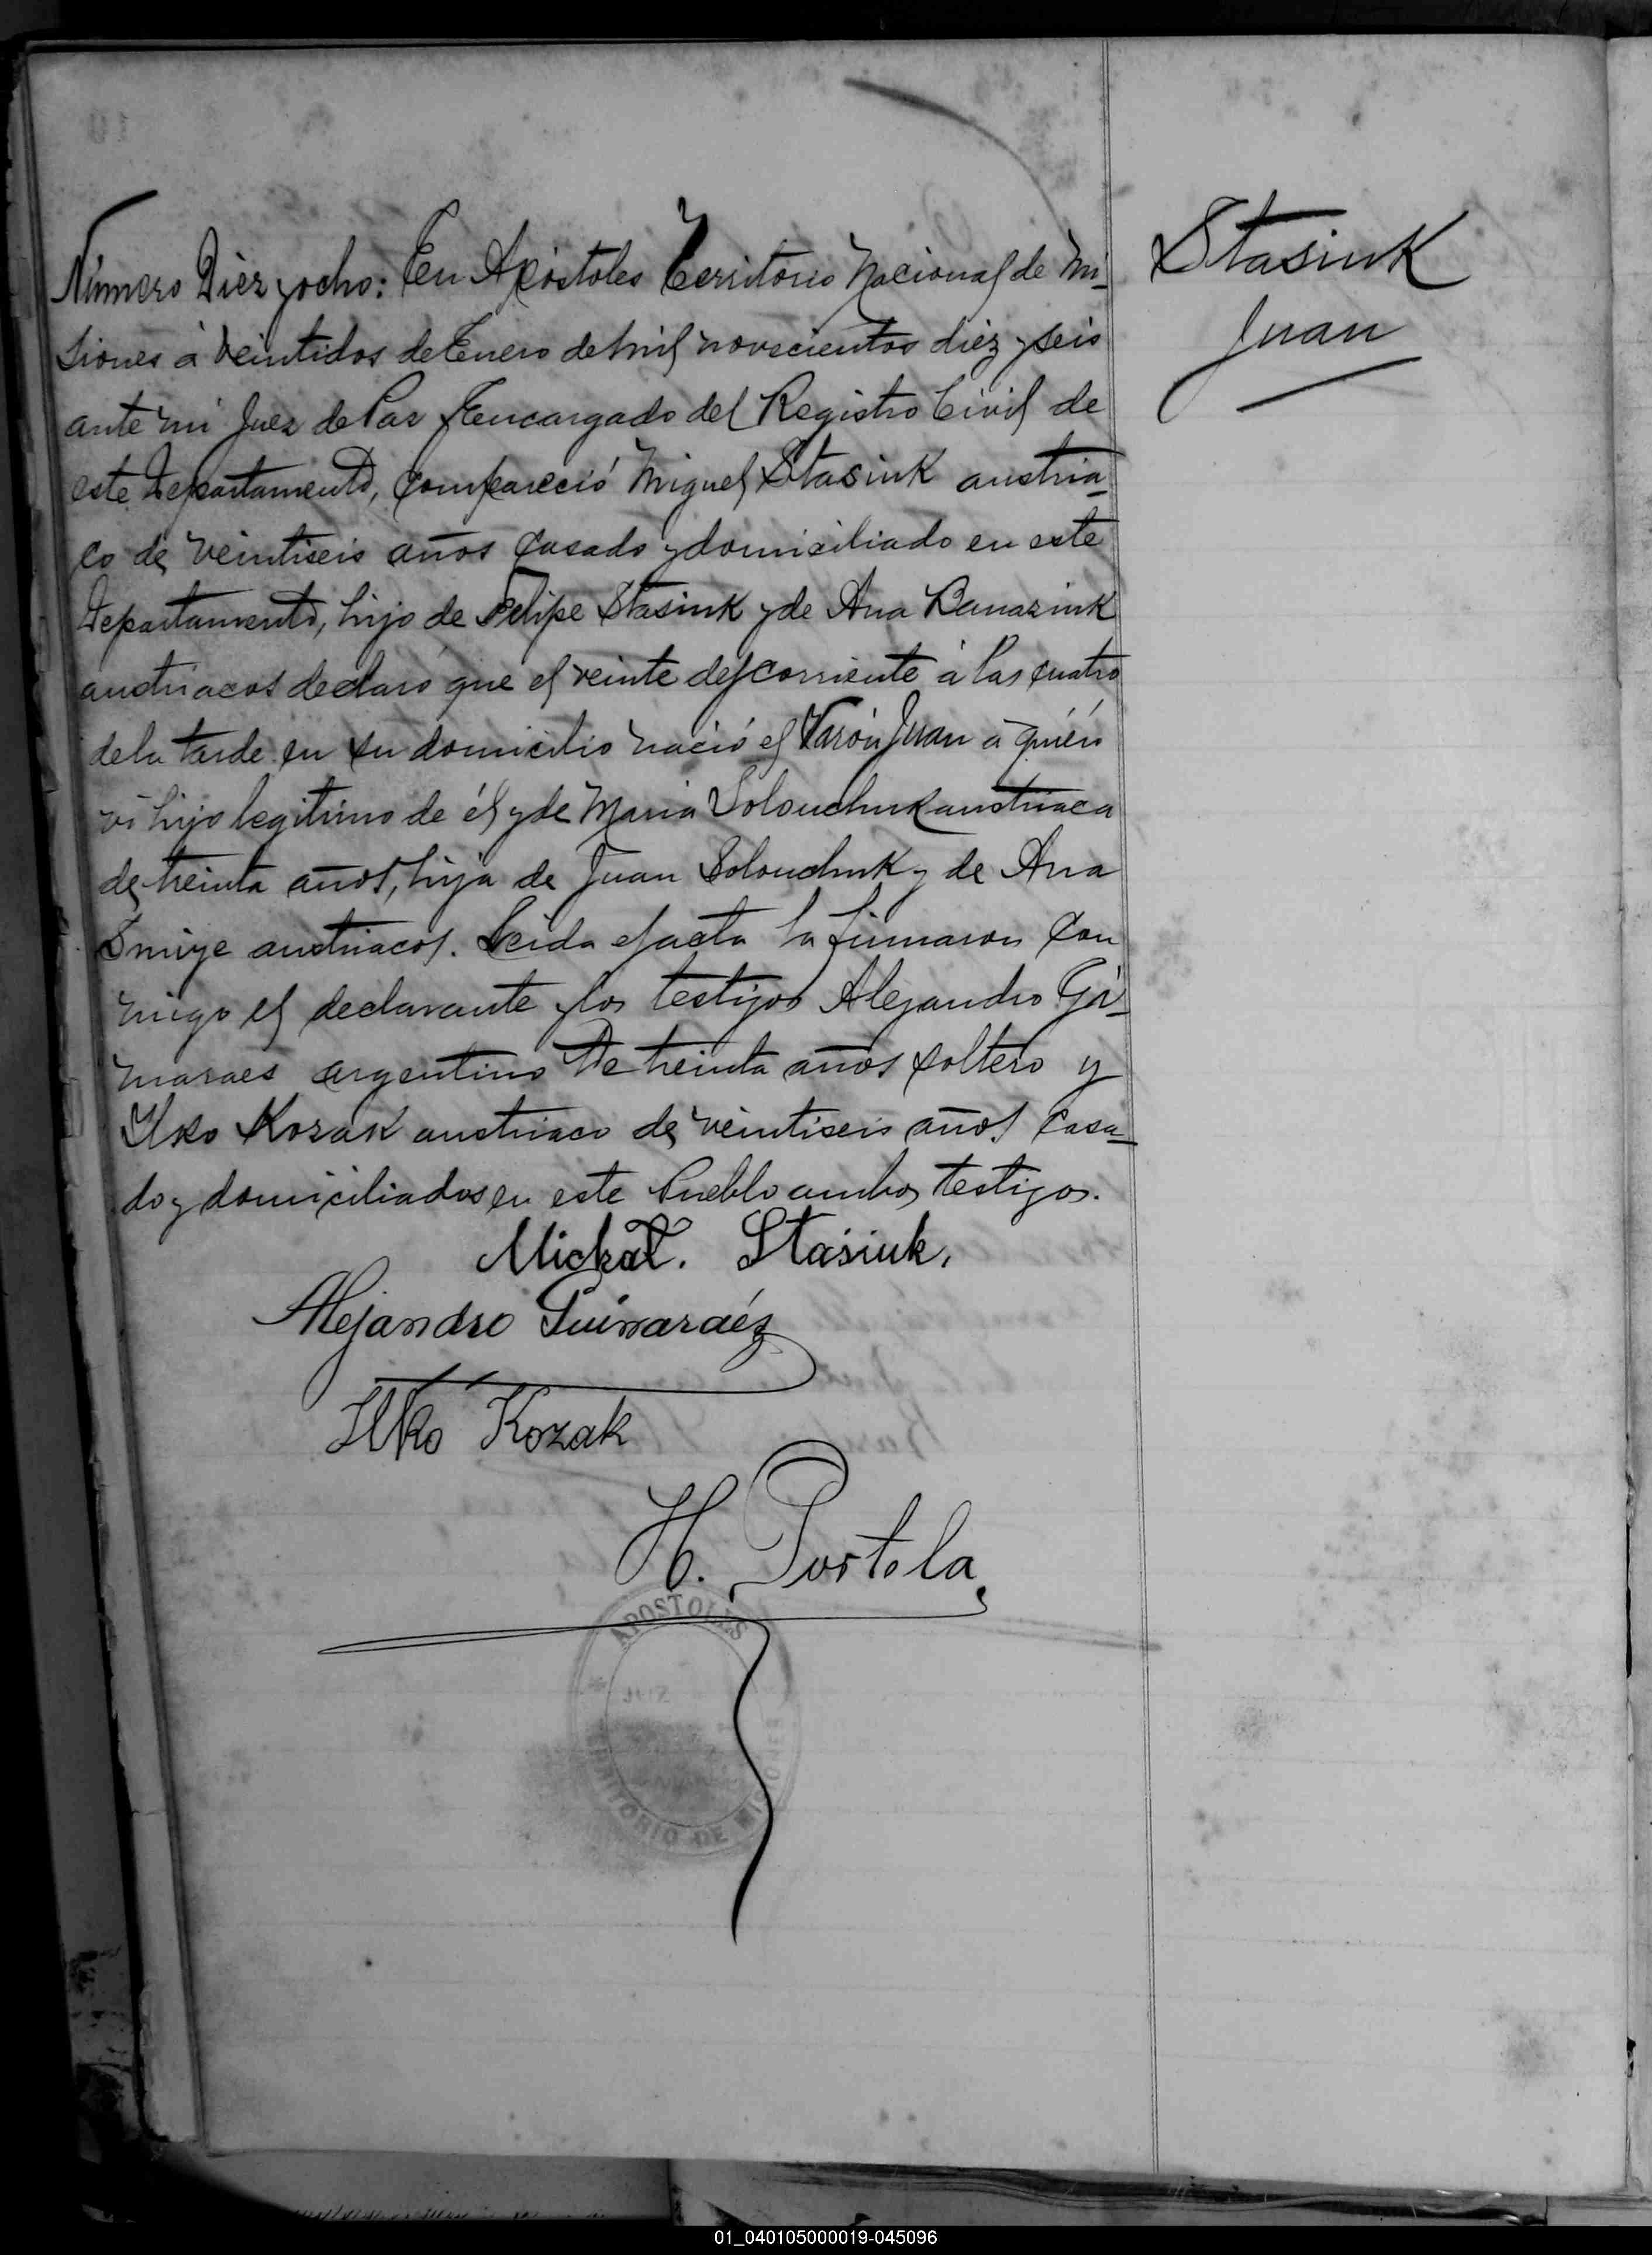 Número Diez y ocho: En Apóstoles Territorio Nacional de Mi-
siones á veintidos de Enero de mil novecientos diez y seis
ante mi Juez de Paz Encargado del Registro Civil de
este Departamento, compareció Miguel Stasiuk austria-
co de veintiseis años casado y domiciliado en este
Departamento, hijo de Felipe Stasiuk y de Ana Banaziuk
austriacos declaró que el veinte del corriente á las cuatro
de la tarde en su domicilio nació el Varón Juan a quién
vi hijo legitimo de él y de Maria Solouchuk austriaca
de treinta años, hija de Juan Solouchuk y de Ana
Smiye austriacos. Leida el acta la firmaron con
migo el declarante y los testigos Alejandro Gi-
maraes argentino de treinta años soltero y
Ilko Kozak austriaco de veintiseis años casa-
do y domiciliados en este Pueblo ambos testigos.
Michał. Stasiuk.
Alejandro Guimaraéz
Ilko Kozak
H. Portela
APOSTOLES
JUZ
TERRITORIO DE MISIONES
Stasiuk
Juan
01_040105000019-045096